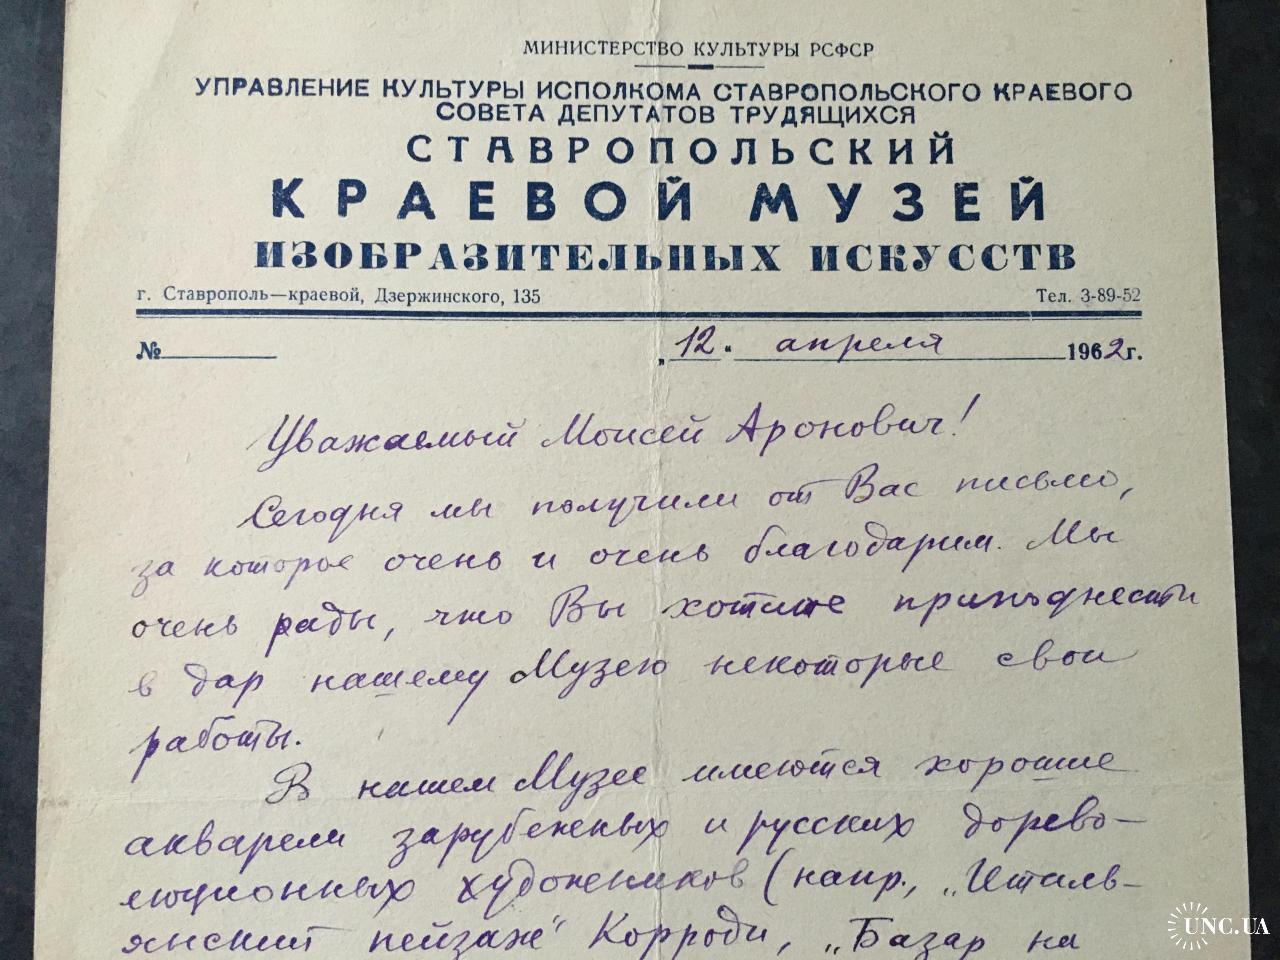 МИНИСТЕРСТВО КУЛЬТУРЫ РСФСР
УПРАВЛЕНИЕ КУЛЬТУРЫ ИСПОЛКОМА СТАВРОПОЛЬСКОГО КРАЕВОГО
СОВЕТА ДЕПУТАТОВ ТРУДЯЩИХСЯ
СТАВРОПОЛЬСКИЙ
КРАЕВОЙ МУЗЕЙ
ИЗОБРАЗИТЕЛЬНЫХ ИСКУССТВ
г. Ставрополь—краевой, Дзержинского, 135 Тел. 3-89-52
№ „12“ апреля 1962г.
Уважаемый Моисей Аронович!
Сегодня мы получили от Вас письмо,
за которое очень и очень благодарим. Мы
очень рады, что Вы хотите приподнести
в дар нашему Музею некоторые свои
работы.
В нашем Музее имеются хорошие
акварели зарубежных и русских дорево-
люционных художников (напр., „Италь-
янский пейзаж" Корроди, „Базар на
UNC.UA